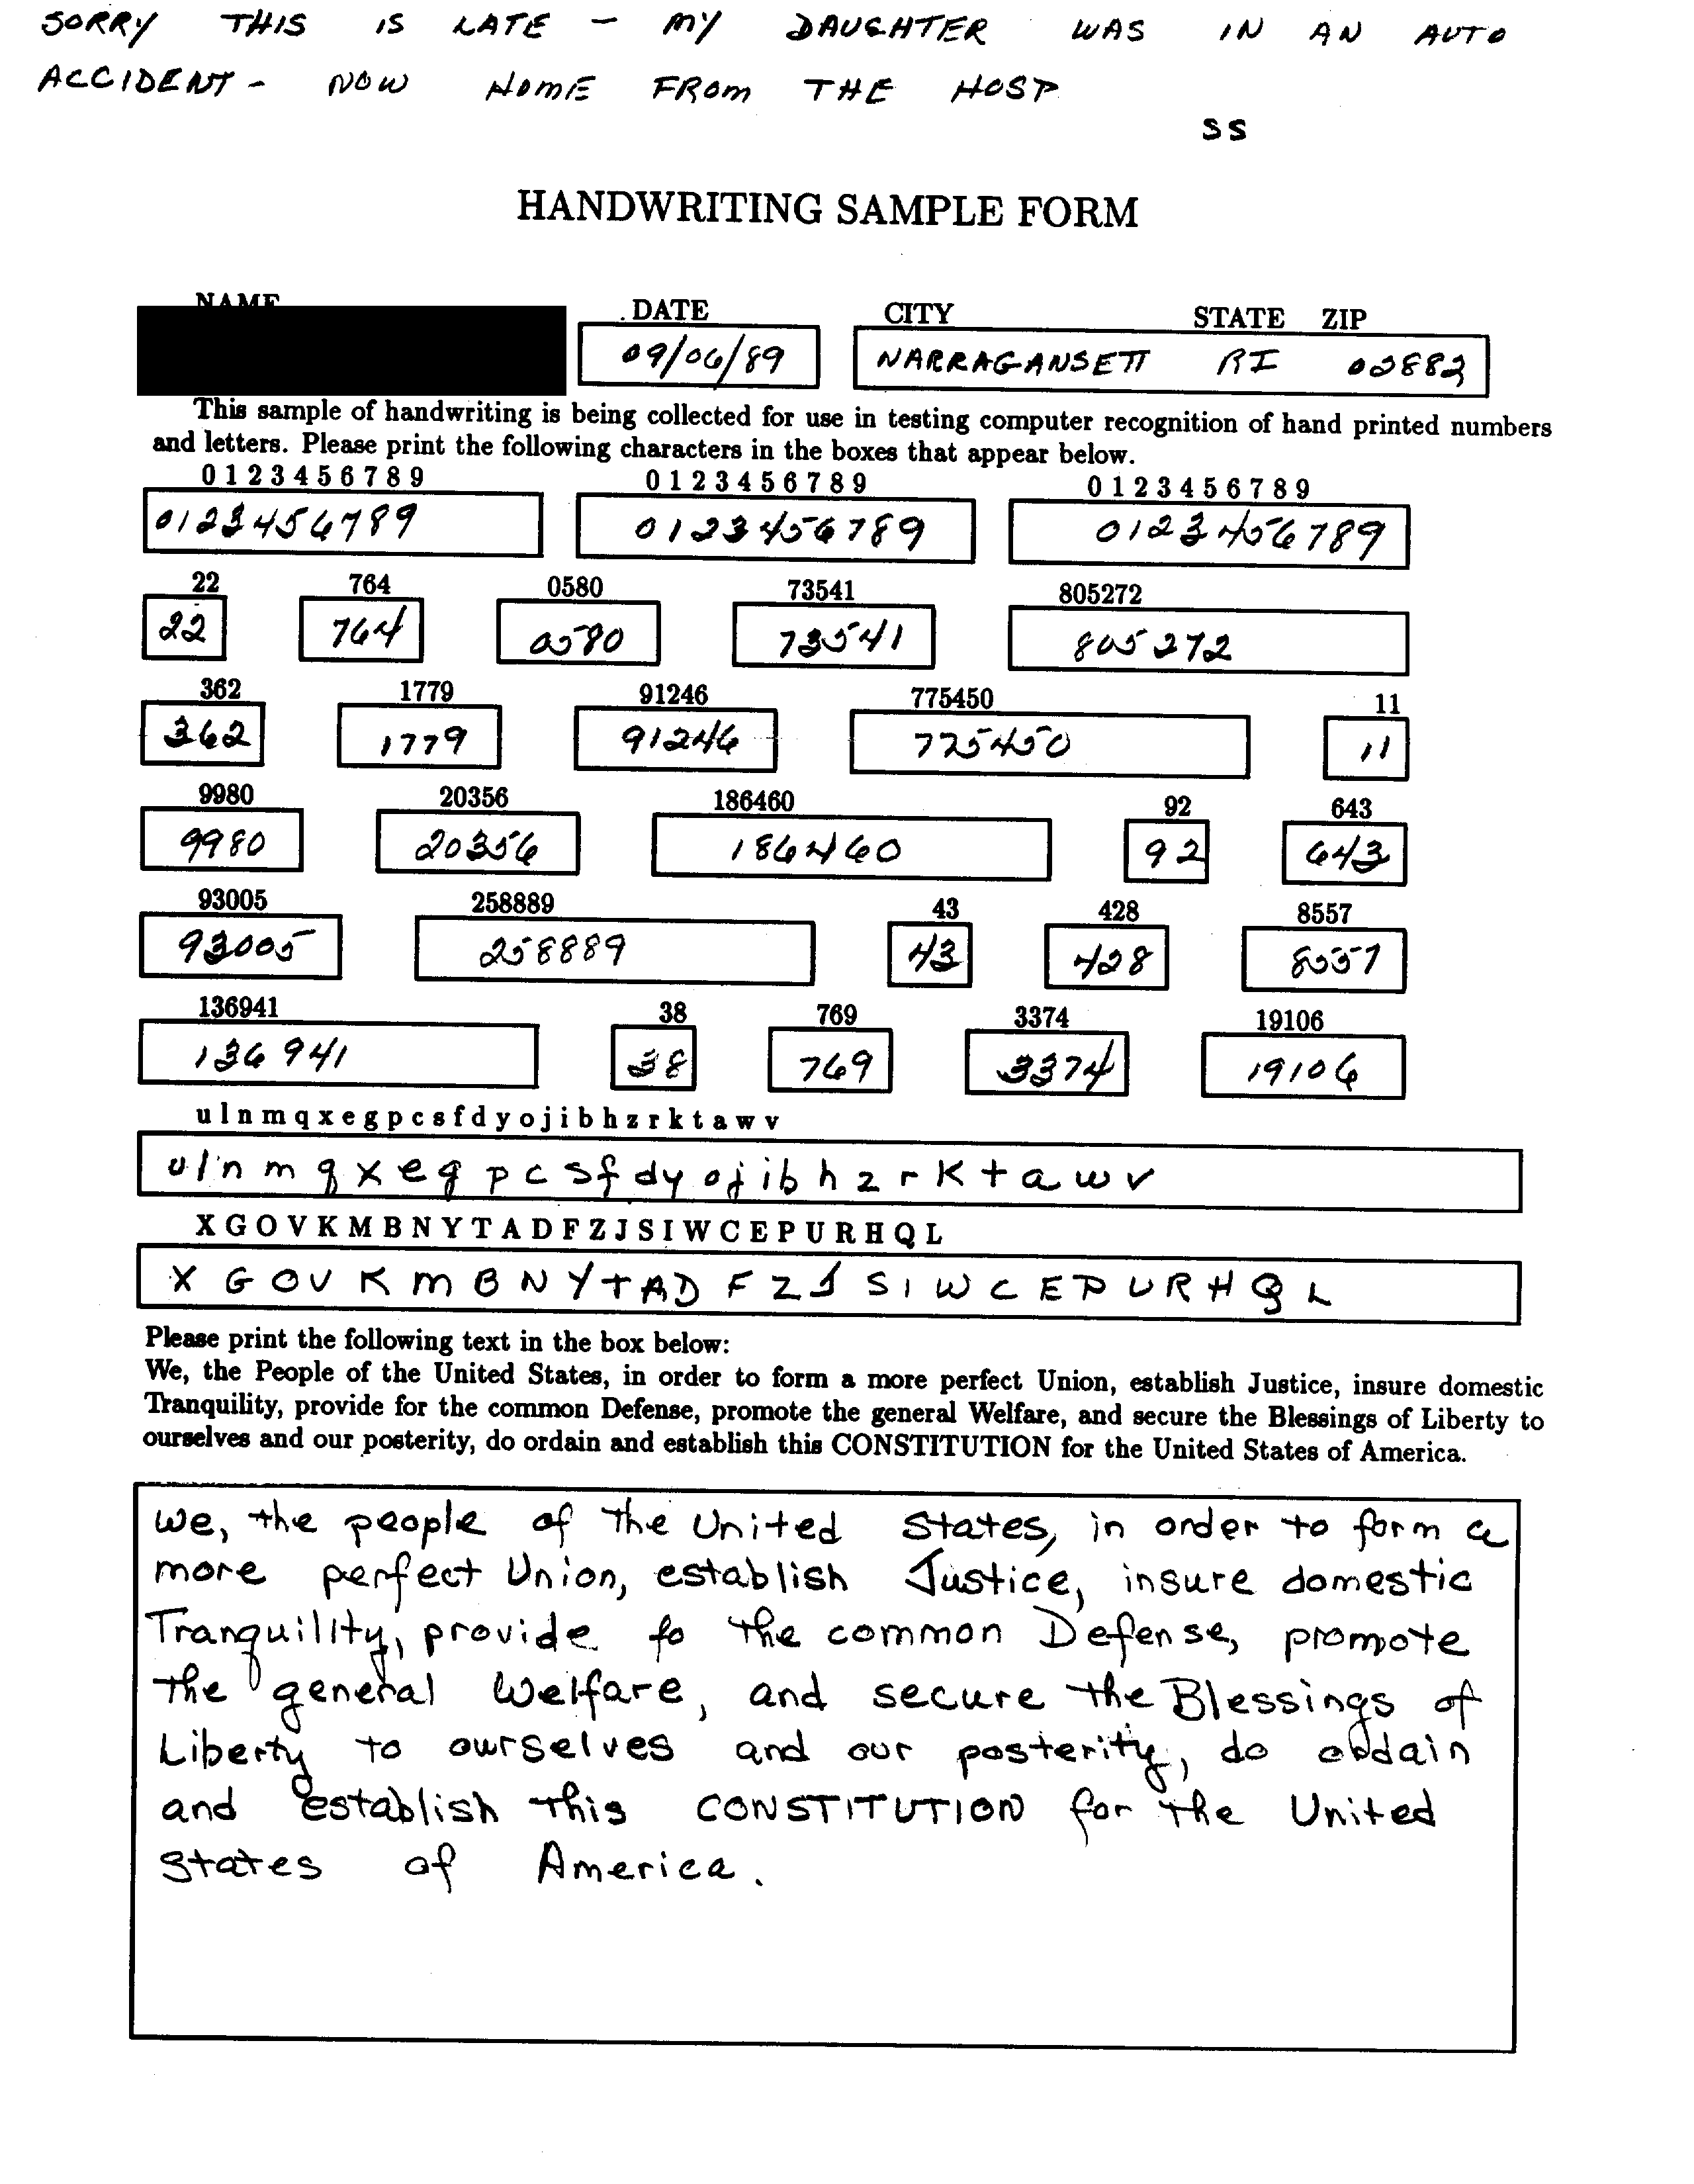 SORRY THIS IS LATE - MY DAUGHTER WAS IN AN AUTO
ACCIDENT - NOW HOME FROM THE HOSP
SS
HANDWRITING SAMPLE FORM
NAME DATE CITY STATE ZIP
09/06/89 NARRAGANSETT RI 02882
This sample of handwriting is being collected for use in testing computer recognition of hand printed numbers
and letters. Please print the following characters in the boxes that appear below.
0 1 2 3 4 5 6 7 8 9 0 1 2 3 4 5 6 7 8 9 0 1 2 3 4 5 6 7 8 9
0123456789 0123456789 0123456789
22 764 0580 73541 805272
22 764 0580 73541 805272
362 1779 91246 775450 11
362 1779 91246 775450 11
9980 20356 186460 92 643
9980 20356 186460 92 643
93005 258889 43 428 8557
93005 258889 43 428 8557
136941 38 769 3374 19106
136941 38 769 3374 19106
u l n m q x e g p c s f d y o j i b h z r k t a w v
u l n m q x e g p c s f d y o j i b h z r k t a w v
X G O V K M B N Y T A D F Z J S I W C E P U R H Q L
X G O V K M B N Y T A D F Z J S I W C E P U R H Q L
Please print the following text in the box below:
We, the People of the United States, in order to form a more perfect Union, establish Justice, insure domestic
Tranquility, provide for the common Defense, promote the general Welfare, and secure the Blessings of Liberty to
ourselves and our posterity, do ordain and establish this CONSTITUTION for the United States of America.
We, the people of the United States, in order to form a
more perfect Union, establish Justice, insure domestic
Tranquility, provide fo the common Defense, promote
the general Welfare, and secure the Blessings of
Liberty to ourselves and our posterity, do obdain
and establish this CONSTITUTION for the United
States of America.